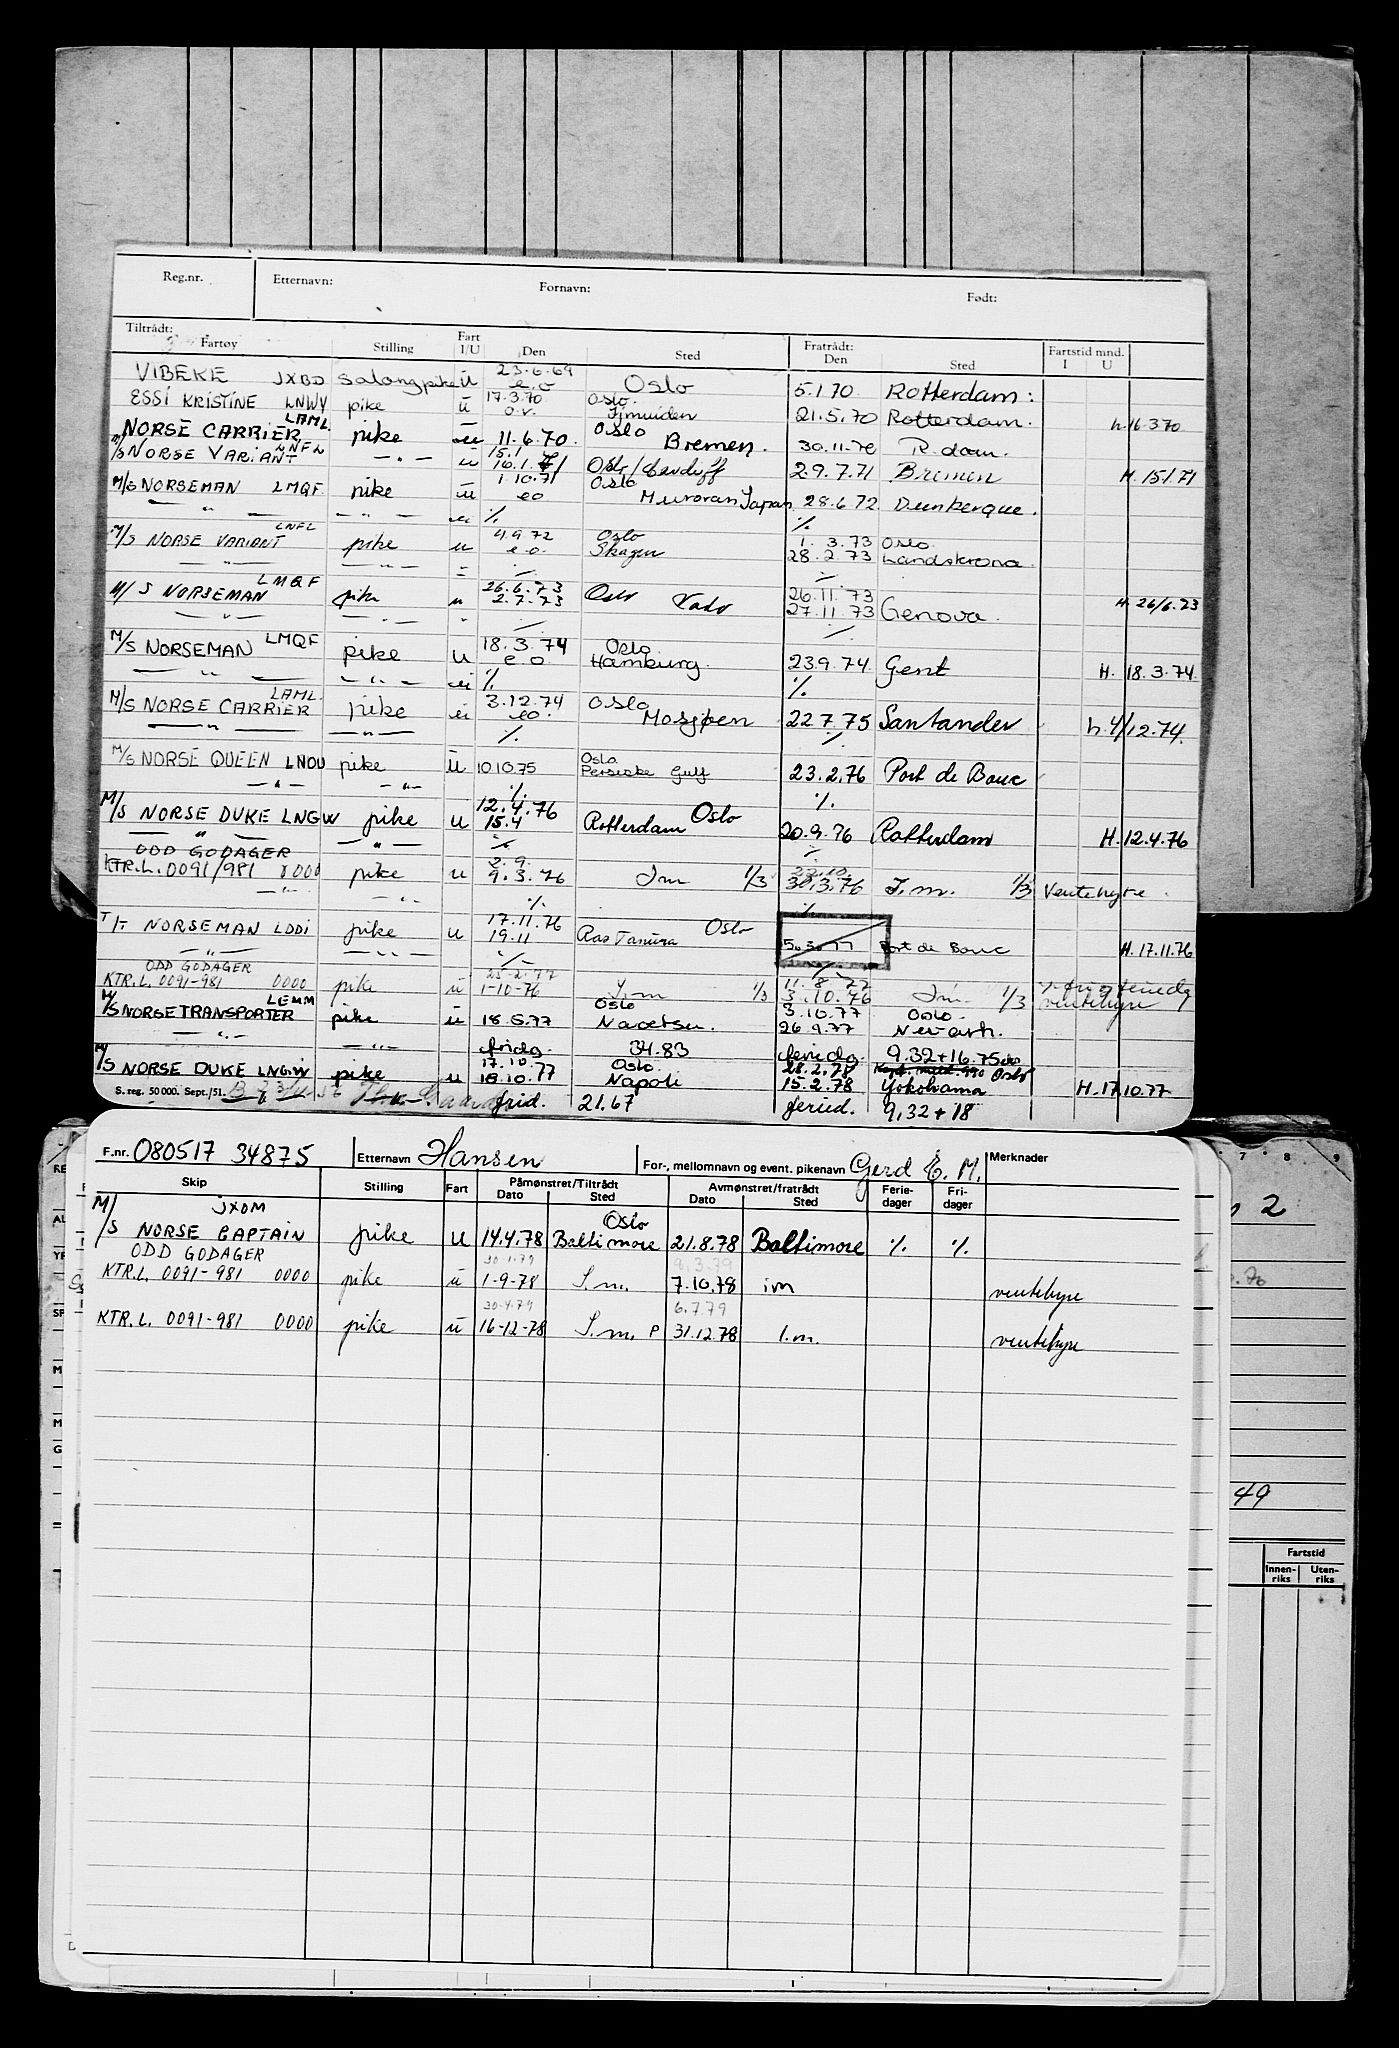 Reg.nr. Etternavn: Fornavn: Født:
Tiltrådt: Fratrådt: Fartstid mnd.
Fartøy Stilling Fart I/U Den Sted Den Sted I U
VIBEKE JXBD Salongpike ü 23.6.69 e.o Oslo 5.1.70 Rotterdam:
ESSI KRISTINE LNWY pike ü 17.3.70 o.v. Oslo. Ijmuiden 21.5.70 Rotterdam. h.16.3.70
NORSE CARRIER LAML. pike 11.6.70. Oslo Bremen. 30.11.70 R.dam.
M/S NORSE VARIANT LNFL — " — ü 15.1 16.1.71 Oslo/Cardiff 29.7.71 Bremen H.15/1.71
M/S NORSEMAN LMQF pike ü 1.10.71 eo Oslo Muroran Japan 28.6.72 Dunkerque.
— " — — " — ei % %
M/S NORSE VARIANT LNFL pike u 4.9.72 e.o. Oslo Skagen 1.3.73 28.2.73 Oslo. Landskrona.
— " — — " — % %
M/S NORSEMAN LMQF pike u 26.6.73 2.7.73 Oslo Vado 26.11.73 27.11.73 Genova. H.26/6.73
— " — — " — % %
M/S NORSEMAN LMQF pike u 18.3.74 e.o. Oslo Hamburg. 23.9.74 Gent H. 18.3.74
— " — — " — ei % %
M/S NORSE CARRIER LAML. pike ei 3.12.74 eo. Oslo Mosjøen 22.7.75 Santander h.4/12.74.
— " — — " — % %
M/S NORSE QUEEN LNOU pike ü 10.10.75 Oslo Persiske Gulf 23.2.76 Port de Bouc
— " — — " — % %
M/S NORSE DUKE LNGW pike u 12.4.76 15.4 Rotterdam Oslo 20.9.76 Rotterdam H.12.4.76
— " — — " — % %
ODD GODAGER
KTR.L. 0091/981 0000 pike u 2.9. 9.3.76 I.m 1/3 30.3.76 I.m. 1/3 Ventehyre.
— " — — " — % %
T/T NORSEMAN LDDI pike u 17.11.76 19.11 Ras Tanura Oslo 5.3.77 Port de Bouc H.17.11.76
— " — — " — % %
ODD GODAGER
KTR.L. 0091-981 0000 pike ü 25-2-77 1-10-76 I.m 1/3 11.8.77 3.10.76 I.m. 1/3 ventehyre
M/S NORSE TRANSPORTER LEMM pike ü 18.5.77 Oslo 3.10.77 26.9.77 Oslo. Newark.
— " — — " — fridg. 34.83 feriedg. 9.32+16.75
M/S NORSE DUKE LNGW pike u 17.10. 18.10.77 Oslo. Napoli 28.2.78 15.2.78 Oslo Yokohama H.17.10.77
S. reg. 50 000. Sept./51. frid. 21.67 feried. 9,32 + 18
F.nr. 080517 34875 Etternavn Hansen For-, mellomnavn og event. pikenavn Gerd E. M. Merknader
Skip Stilling Fart Påmønstret/Tiltrådt Dato Sted Avmønstret/fratrådt Dato Sted Ferie-dager Fri-dager
M/S NORSE CAPTAIN JXDM pike u 14.4.78 Oslo Baltimore 21.8.78 Baltimore % %
ODD GODAGER 30-1.79 9.3.79
KTR.L. 0091-981 0000 pike ü 1-9-78 I.m. 7.10.78 im ventehyre
30-4.79 6.7.79
KTR.L. 0091-981 0000 pike ü 16-12-78 I.m. P 31.12.78 I.m. ventehyre
7 8 9
2
49
Fartstid
Innen-riks Uten-riks